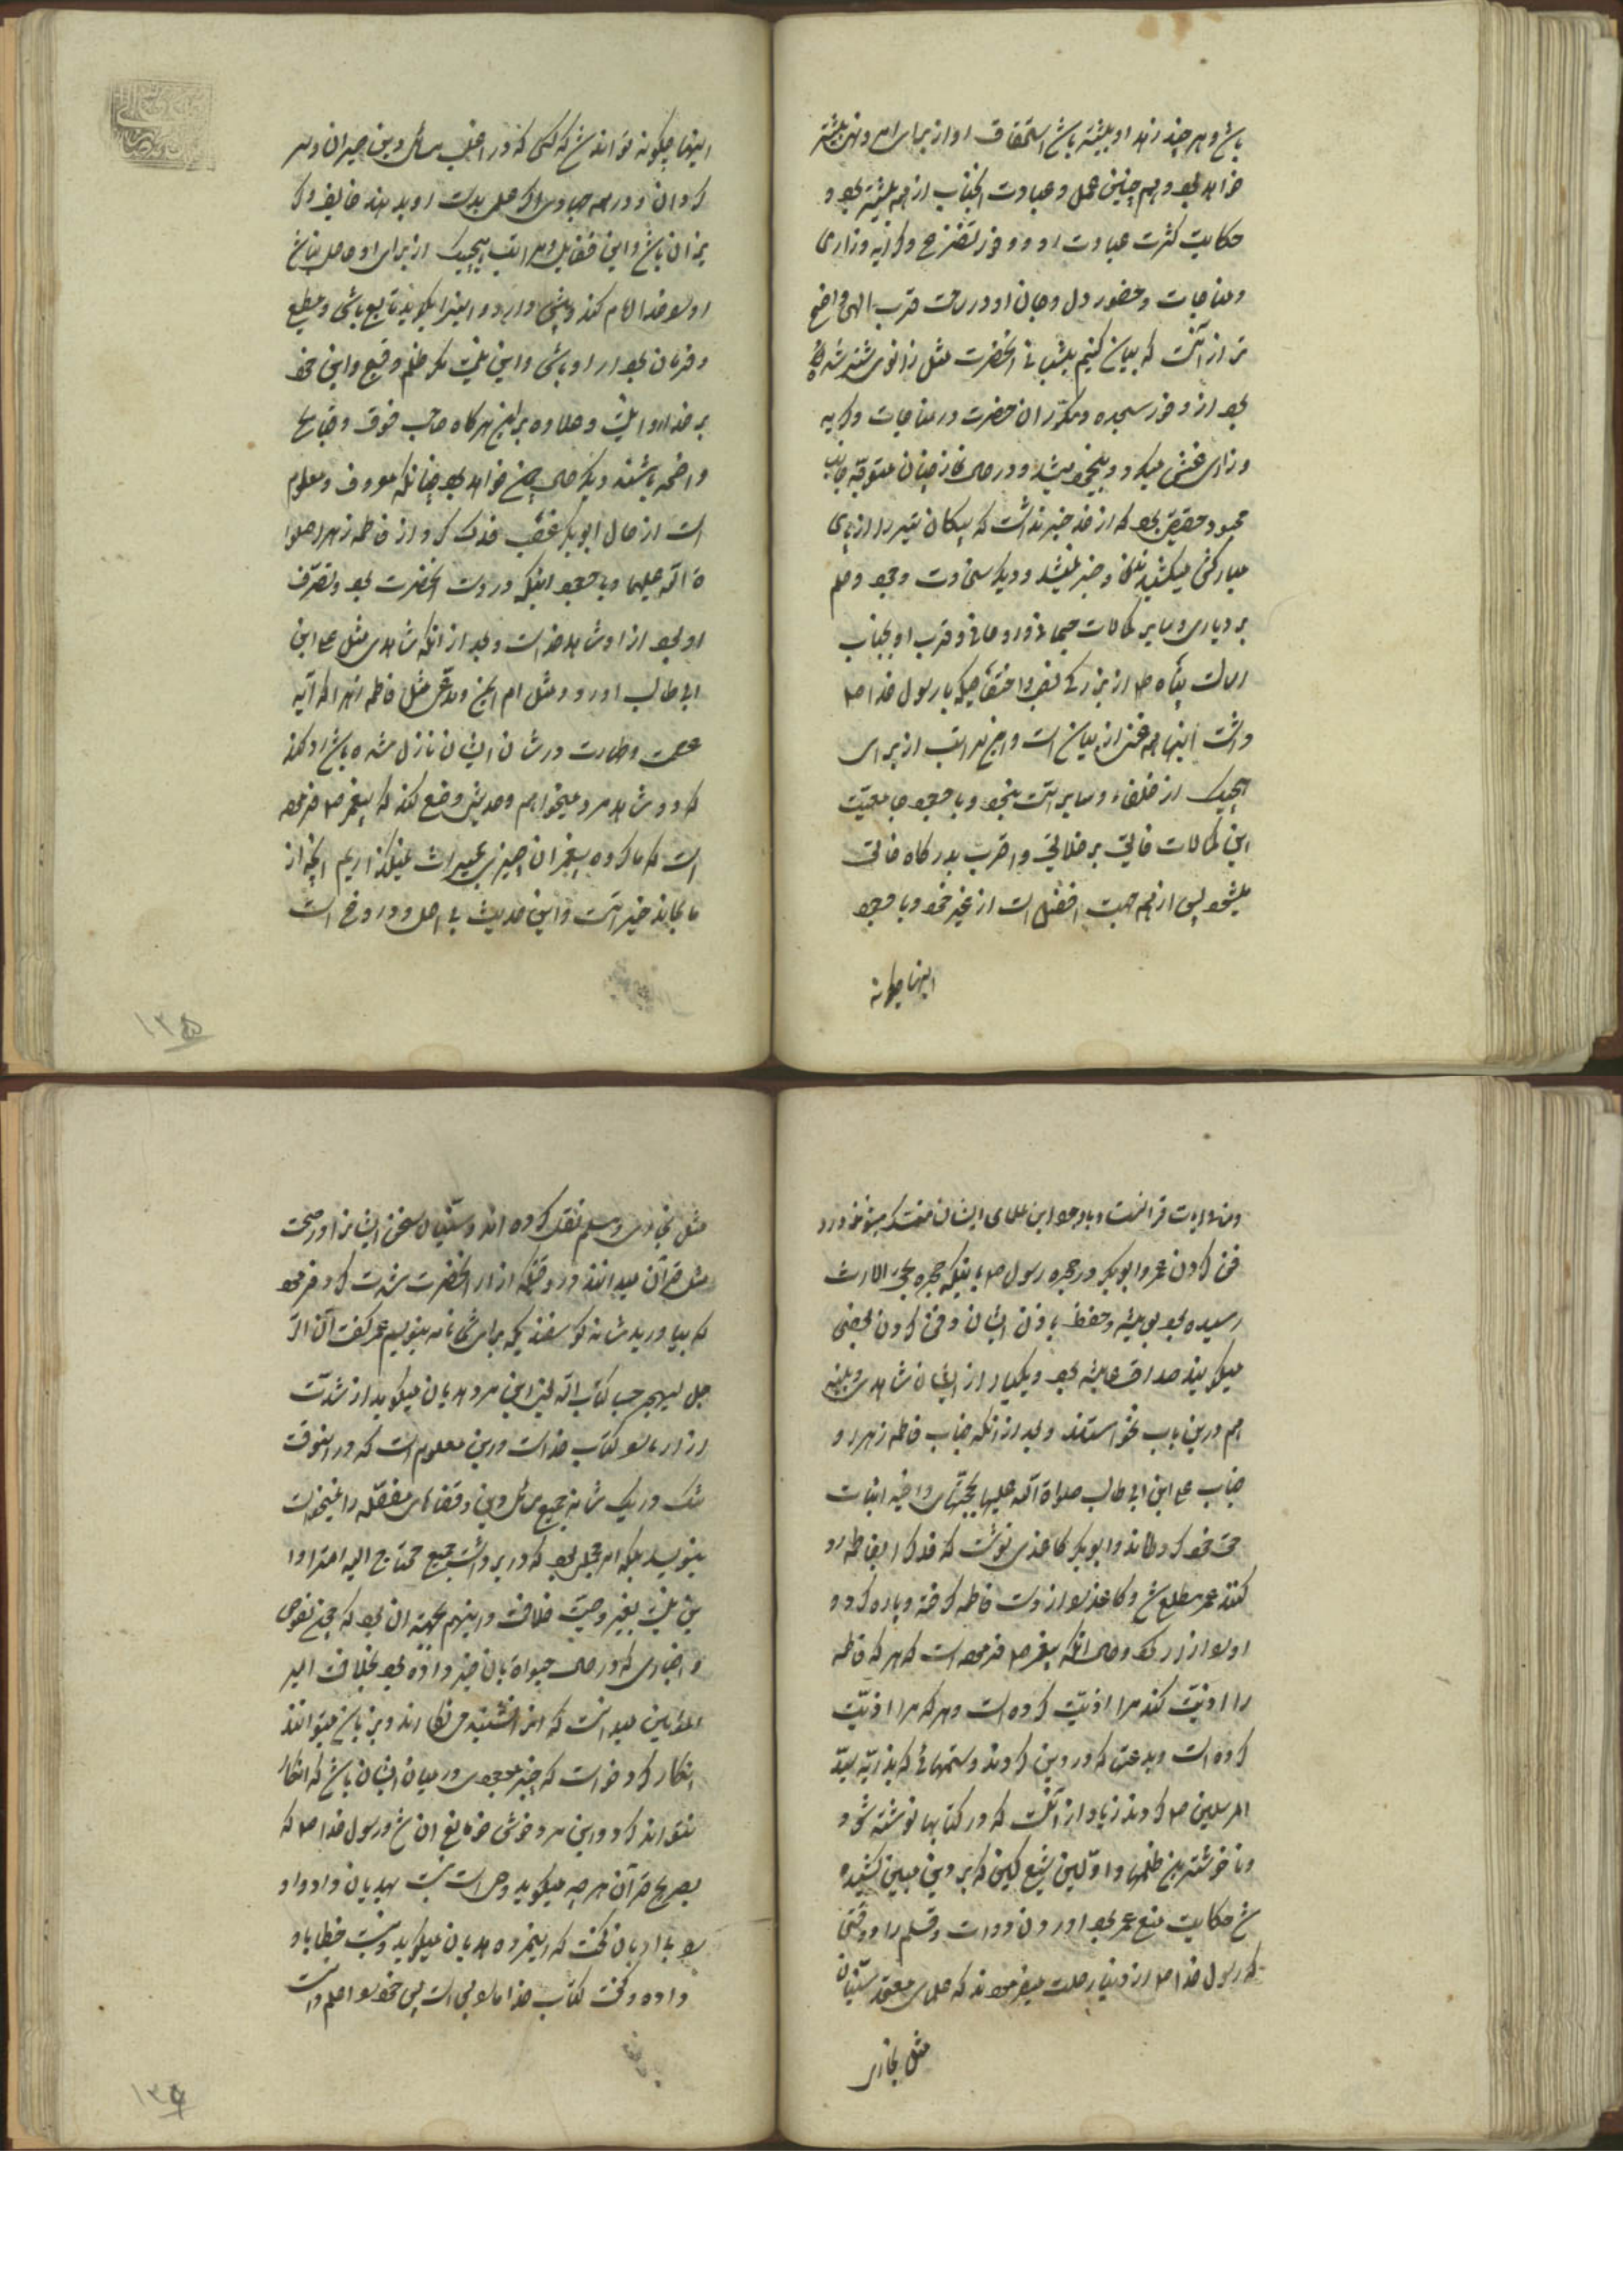 باشد و هر چند زهد او بیشتر باشد استحقاق او از برای امر دین بیشتر
خواهد بود و همچنین عمل و عبادت آنجناب از همه بیشتر بود و
حکایت کثرت عبادت او و وفور تضرع و گریه و زاری
و مناجات و حضور دل و جان او در ساحت قرب الهی واضح
تر از آنست که بیان کنیم پیشانی آنحضرت مثل زانوی شتر شده
بود از وفور سجده و مکرر آن حضرت در مناجات و گریه
و زاری غش میکرد و بیخود میشد و در حال نماز چنان متوجه جانب
معبود حقیقی بود که از خود خبر نداشت که پیکان تیر را از پای
مبارکش میکشیدند و خبر نمیشد و دیگر سخاوت وجود و حلم
بردباری و سایر کمالات جسمانی و روحانی و قرب او بجناب
رسالت پناه ص از بزرگی نفس و اختصاصیکه با رسول خدا ص
داشت اینها همه غنی از بیان است و این مراتب از برای
هیچیک از خلفاء و سایر امت نبود و با وجود جامعیت
این کمالات فایق بر خلایق و اقرب بدرگاه خالق
میشود پس از همه جهت افضل است از غیر خود و با وجود
اینها چگونه
اینها چگونه تواند شد که کسی که در اغلب مسائل دین حیران و سر
گردان و در همه جهادی و اگر عملی بدست او بدهند خایف و گر
یزان باشد و این فضایل و مراتب هیچیک از برای او حاصل نباشد
او را خدا امام کند و پیشی دارد و اینرا بگوید تابع باشی و مطیع
و فرمان بردار او باشی و این نیست مگر ظلم و قبیح و این خود
بر خدا روا نیست و علاوه بر این هرگاه صاحب فسوق و قبایح
واضحه باشند دیگر حال چون خواهد بود چنانکه معروف و معلوم
است از حال ابوبکر غصب فدک کرد از فاطمه زهرا صلوا
ة الله علیها و با وجود اینکه در دست آنحضرت بود و تصرف
او بود از او شاهد خواست و بعد از آنکه شاهدی مثل علی ابن
ابی طالب آورد و مثل ام ایمن و مدعی مثل فاطمه زهرا که آیه
عصمت و طهارت در شان ایشان نازل شده باشد رد کند
که دو شاهد مرد میخواهم و حدیثی وضع کند که پیغمبر ص فرموده
است که ما گروه پیغمبران چیزی بمیراث نمیگذاریم آنچه از
ما بماند خیر است و این حدیث بی اصل و دروغ است
۱۳۵
و منافی آیات قرآنست و با وجود این علمای ایشان متمسک میشوند در
دفن کردن عمر و ابوبکر در حجره رسول ص باینکه حجره بحق الارث
رسیده بود بعایشه و حفصه باذن ایشان دفن کردن بعضی
میگویند صداق عایشه بود و یکبار از ایشان شاهدی و بینه
هم درین باب نخواستند و بعد از آنکه جناب فاطمه زهرا و
جناب علی ابن ابی طالب صلوات الله علیها بحجتهای واضحه اثبات
حق خود کردند و ابوبکر کاغذی نوشت که فدک را بفاطمه رد
کنند عمر مطلع شد و کاغذ را از دست فاطمه گرفته و پاره کرد و
او را آزار کرد و حال آنکه پیغمبر ص فرموده است که هر که فاطمه
را اذیت کند مرا اذیت کرده است و هر که مرا اذیت
کرده است و بدعتی که در دین کردند و ستمهائی که بذریه سید
المرسلین ص کردند زیاد از آنست که در کتابها نوشته شود
و ناخوشترین ظلمها و اولین تیغ کین که بر دین مبین کشیده
شد حکایت منع عمر بود آوردن دوات و قلم را در وقتی
که رسول خدا ص از دنیا رحلت میفرمودند که علمای معتمد سنیان
مثل بخاری
مثل بخاری و مسلم نقل کرده اند و سنیان سخن ایشانرا در صحت
مثل قرآن میدانند در وقتیکه آزار آنحضرت شدت کرد فرمود
که بیاورید شانه گوسفندی که برای شما نامه بنویسم عمر گفت ان الر
جل لیهجر حسبنا کتاب الله یعنی این مرد هذیان میگوید از شدت
آزار ما را کتاب خدا بس است و این معلوم است که در اینوقت
تنگ در یک شانه جمیع مسائل دین و قضایای مفصله را نمیخواست
بنویسد بلکه امر مجملی بود که در برداشت جمیع محتاج الیه امت را و
این نیست بغیر وصیت خلافت و اینهم بجهت آن بود که جمیع نصوص
و اخباری که در حال حیوة بآن خبر داده بود بخلافت امیر
المؤمنین میدانست که اثر نکرده اند و بزبان میتوانند
انکار کرد خواست که چیز موجودی در میان ایشان باشد که انکار
نتوانند کرد و این مرد خوش خو مانع آن شد و رسول خدا ص که
بصریح قرآن هر چه میگوید وحی است نسبت بهذیان داد و او
را بی ادبانه گفت که این مرد هذیان میگوید و نسبت خطا باو
داده و گفت کتاب خدا ما را بس است پس خود را اعلم دانست
۱۳۶